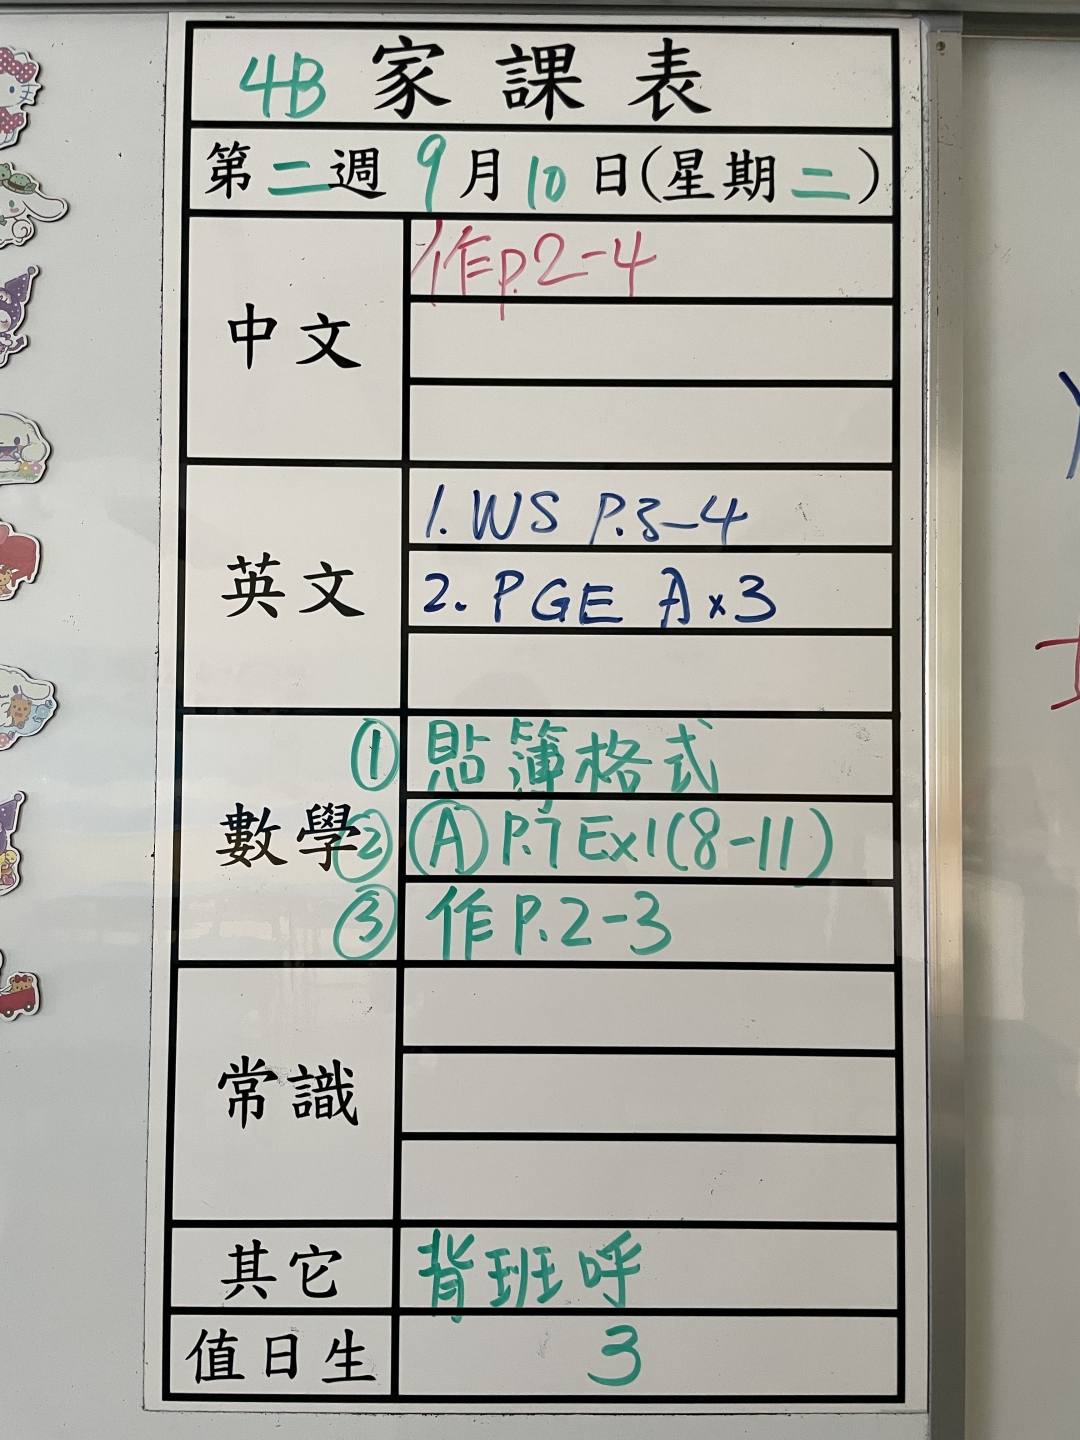 4B 家課表
第二週 9月10日(星期二)
中文
作P.2-4
英文
1. WS P.3-4
2. PGE A×3
數學
① 貼簿格式
② Ⓐ P.7 Ex1(8-11)
③ 作 P.2-3
常識
其它
背班呼
值日生
3